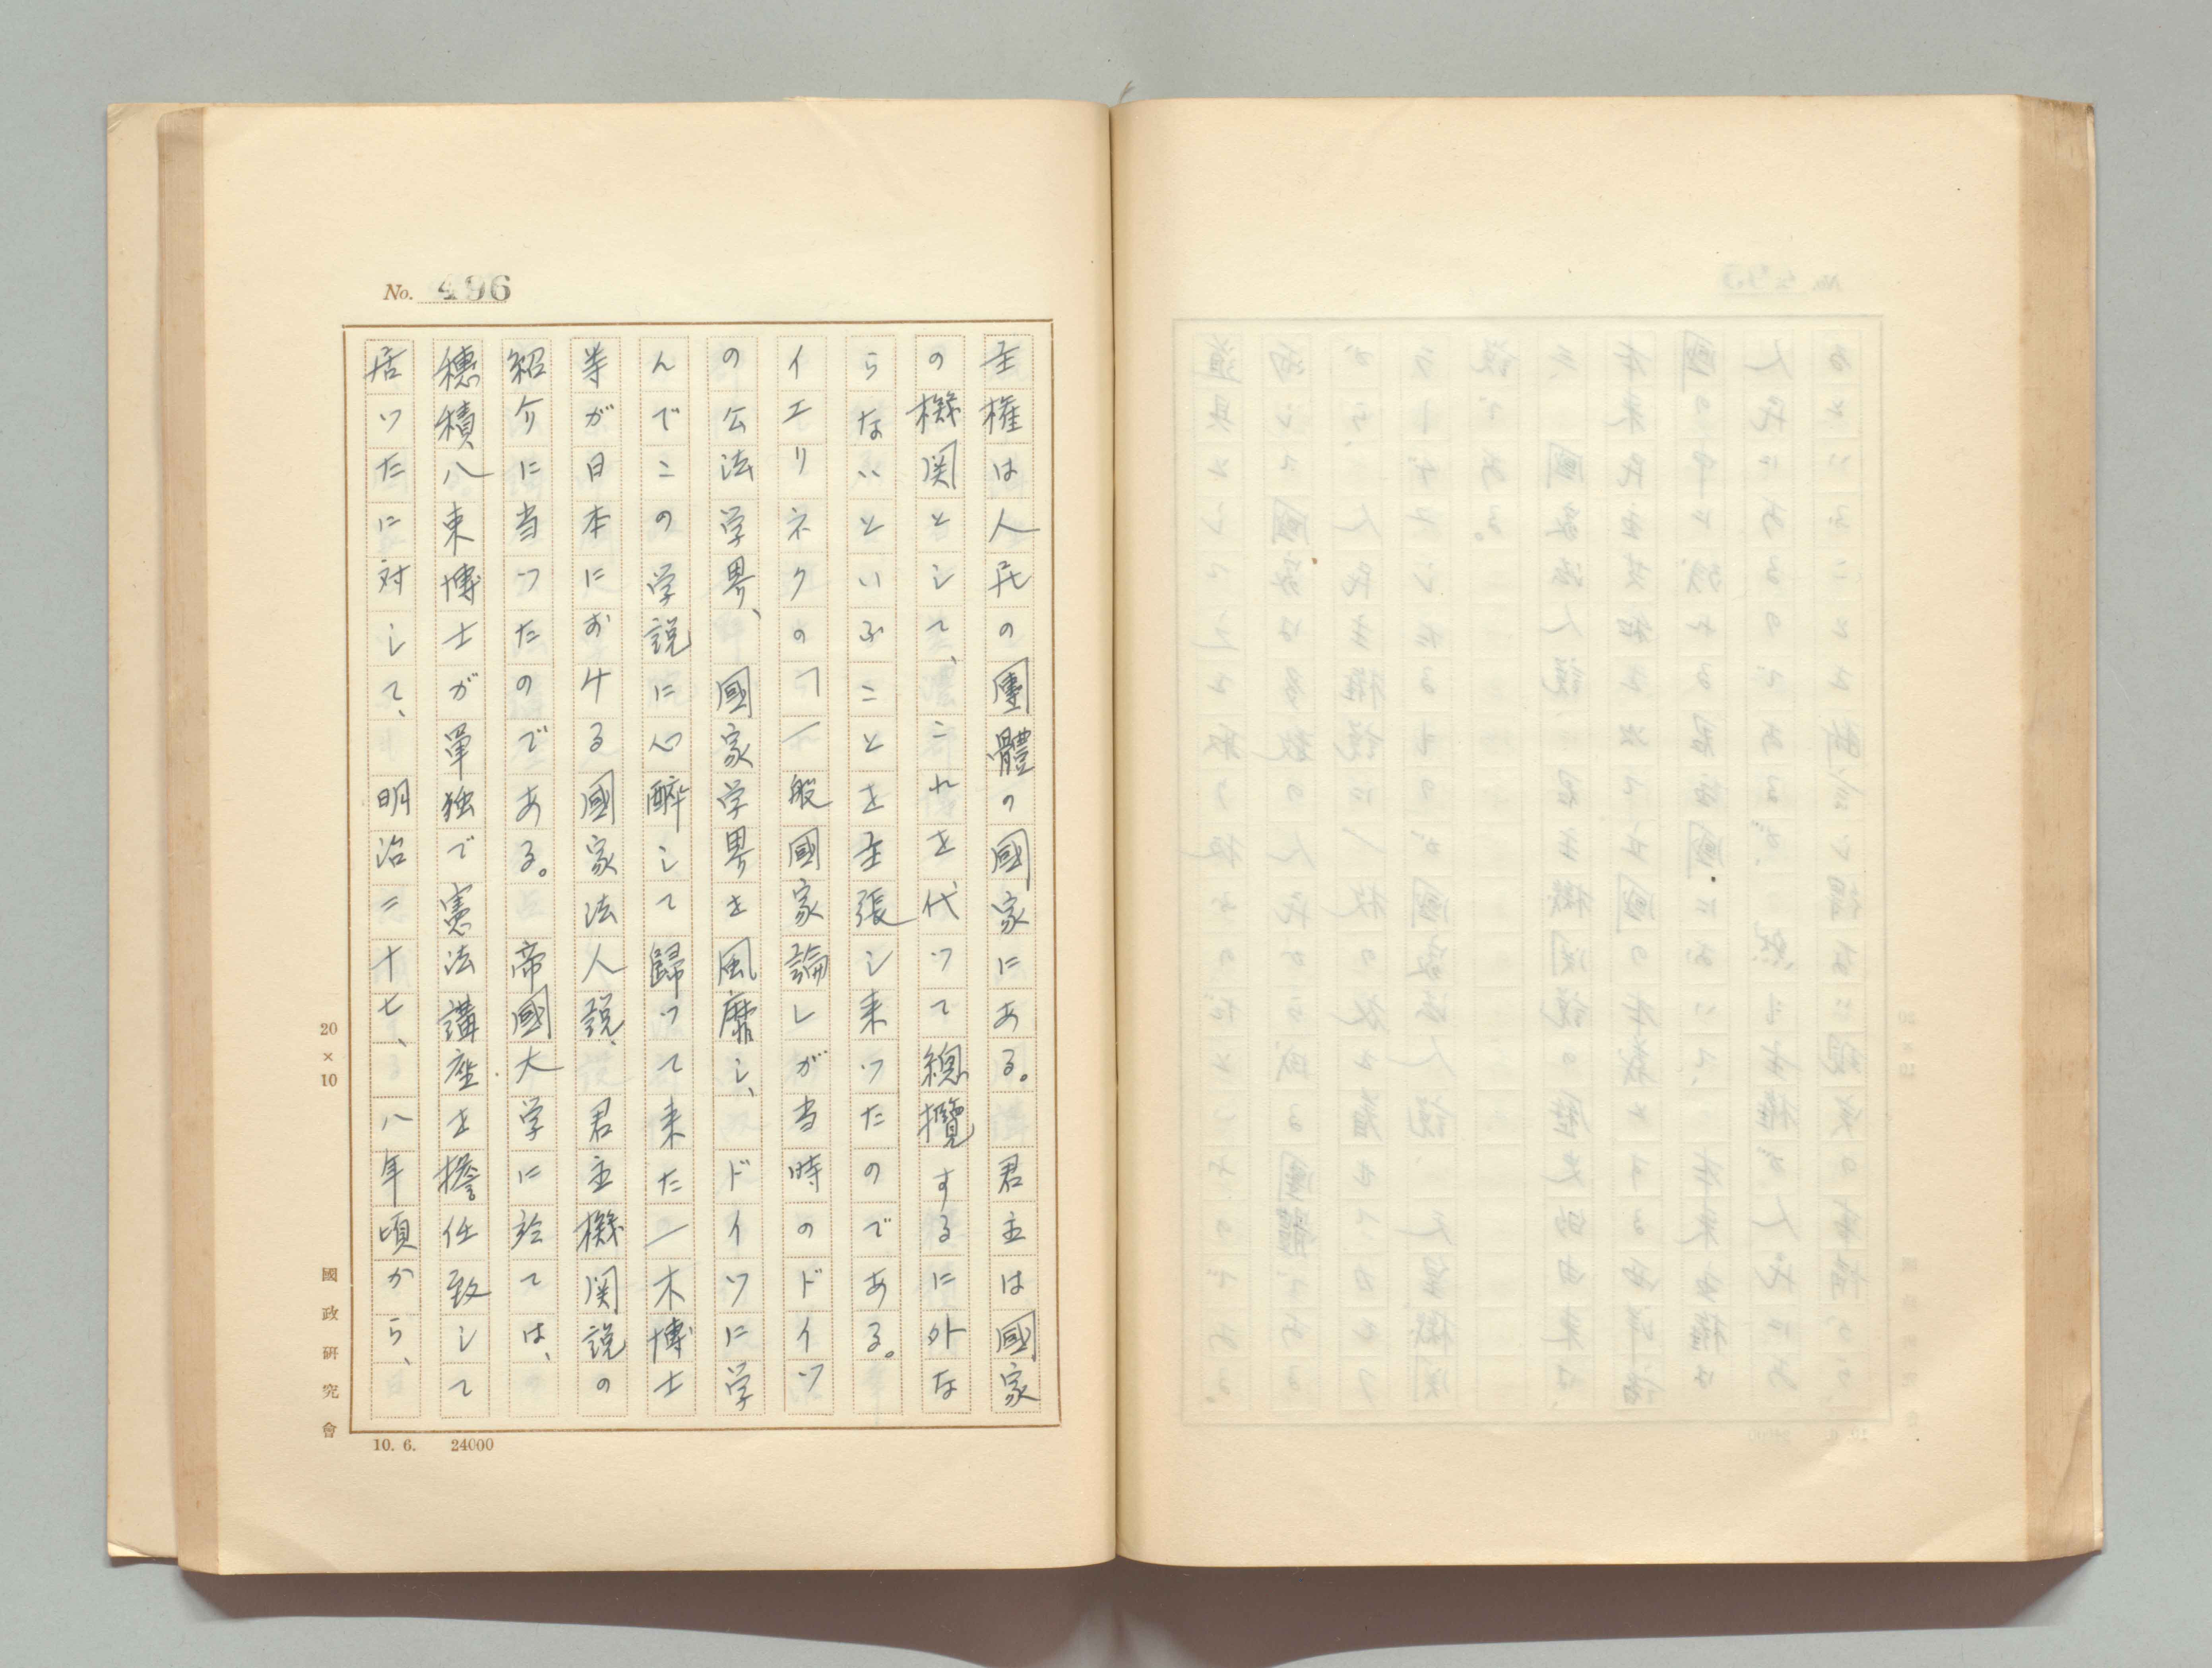 No. 496
主権は人民の團體の國家にある。　君主は國家
の機関として、これを代つて總攬するに外な
らないといふことを主張し来つたのである。
イエリネクの「一般國家論」が当時のドイツ
の公法学界、國家学界を風靡し、ドイツに学
んでこの学説に心酔して歸つて来た一木博士
等が日本におけ る國家法人説、君主機関説の
紹介に当つたのである。　帝國大学に於ては、
穗積八束博士が單独で憲法講座を擔任致して
居つたに対して、　明治二十七、八年頃から、
20×10
國政研究會
10. 6.　24000